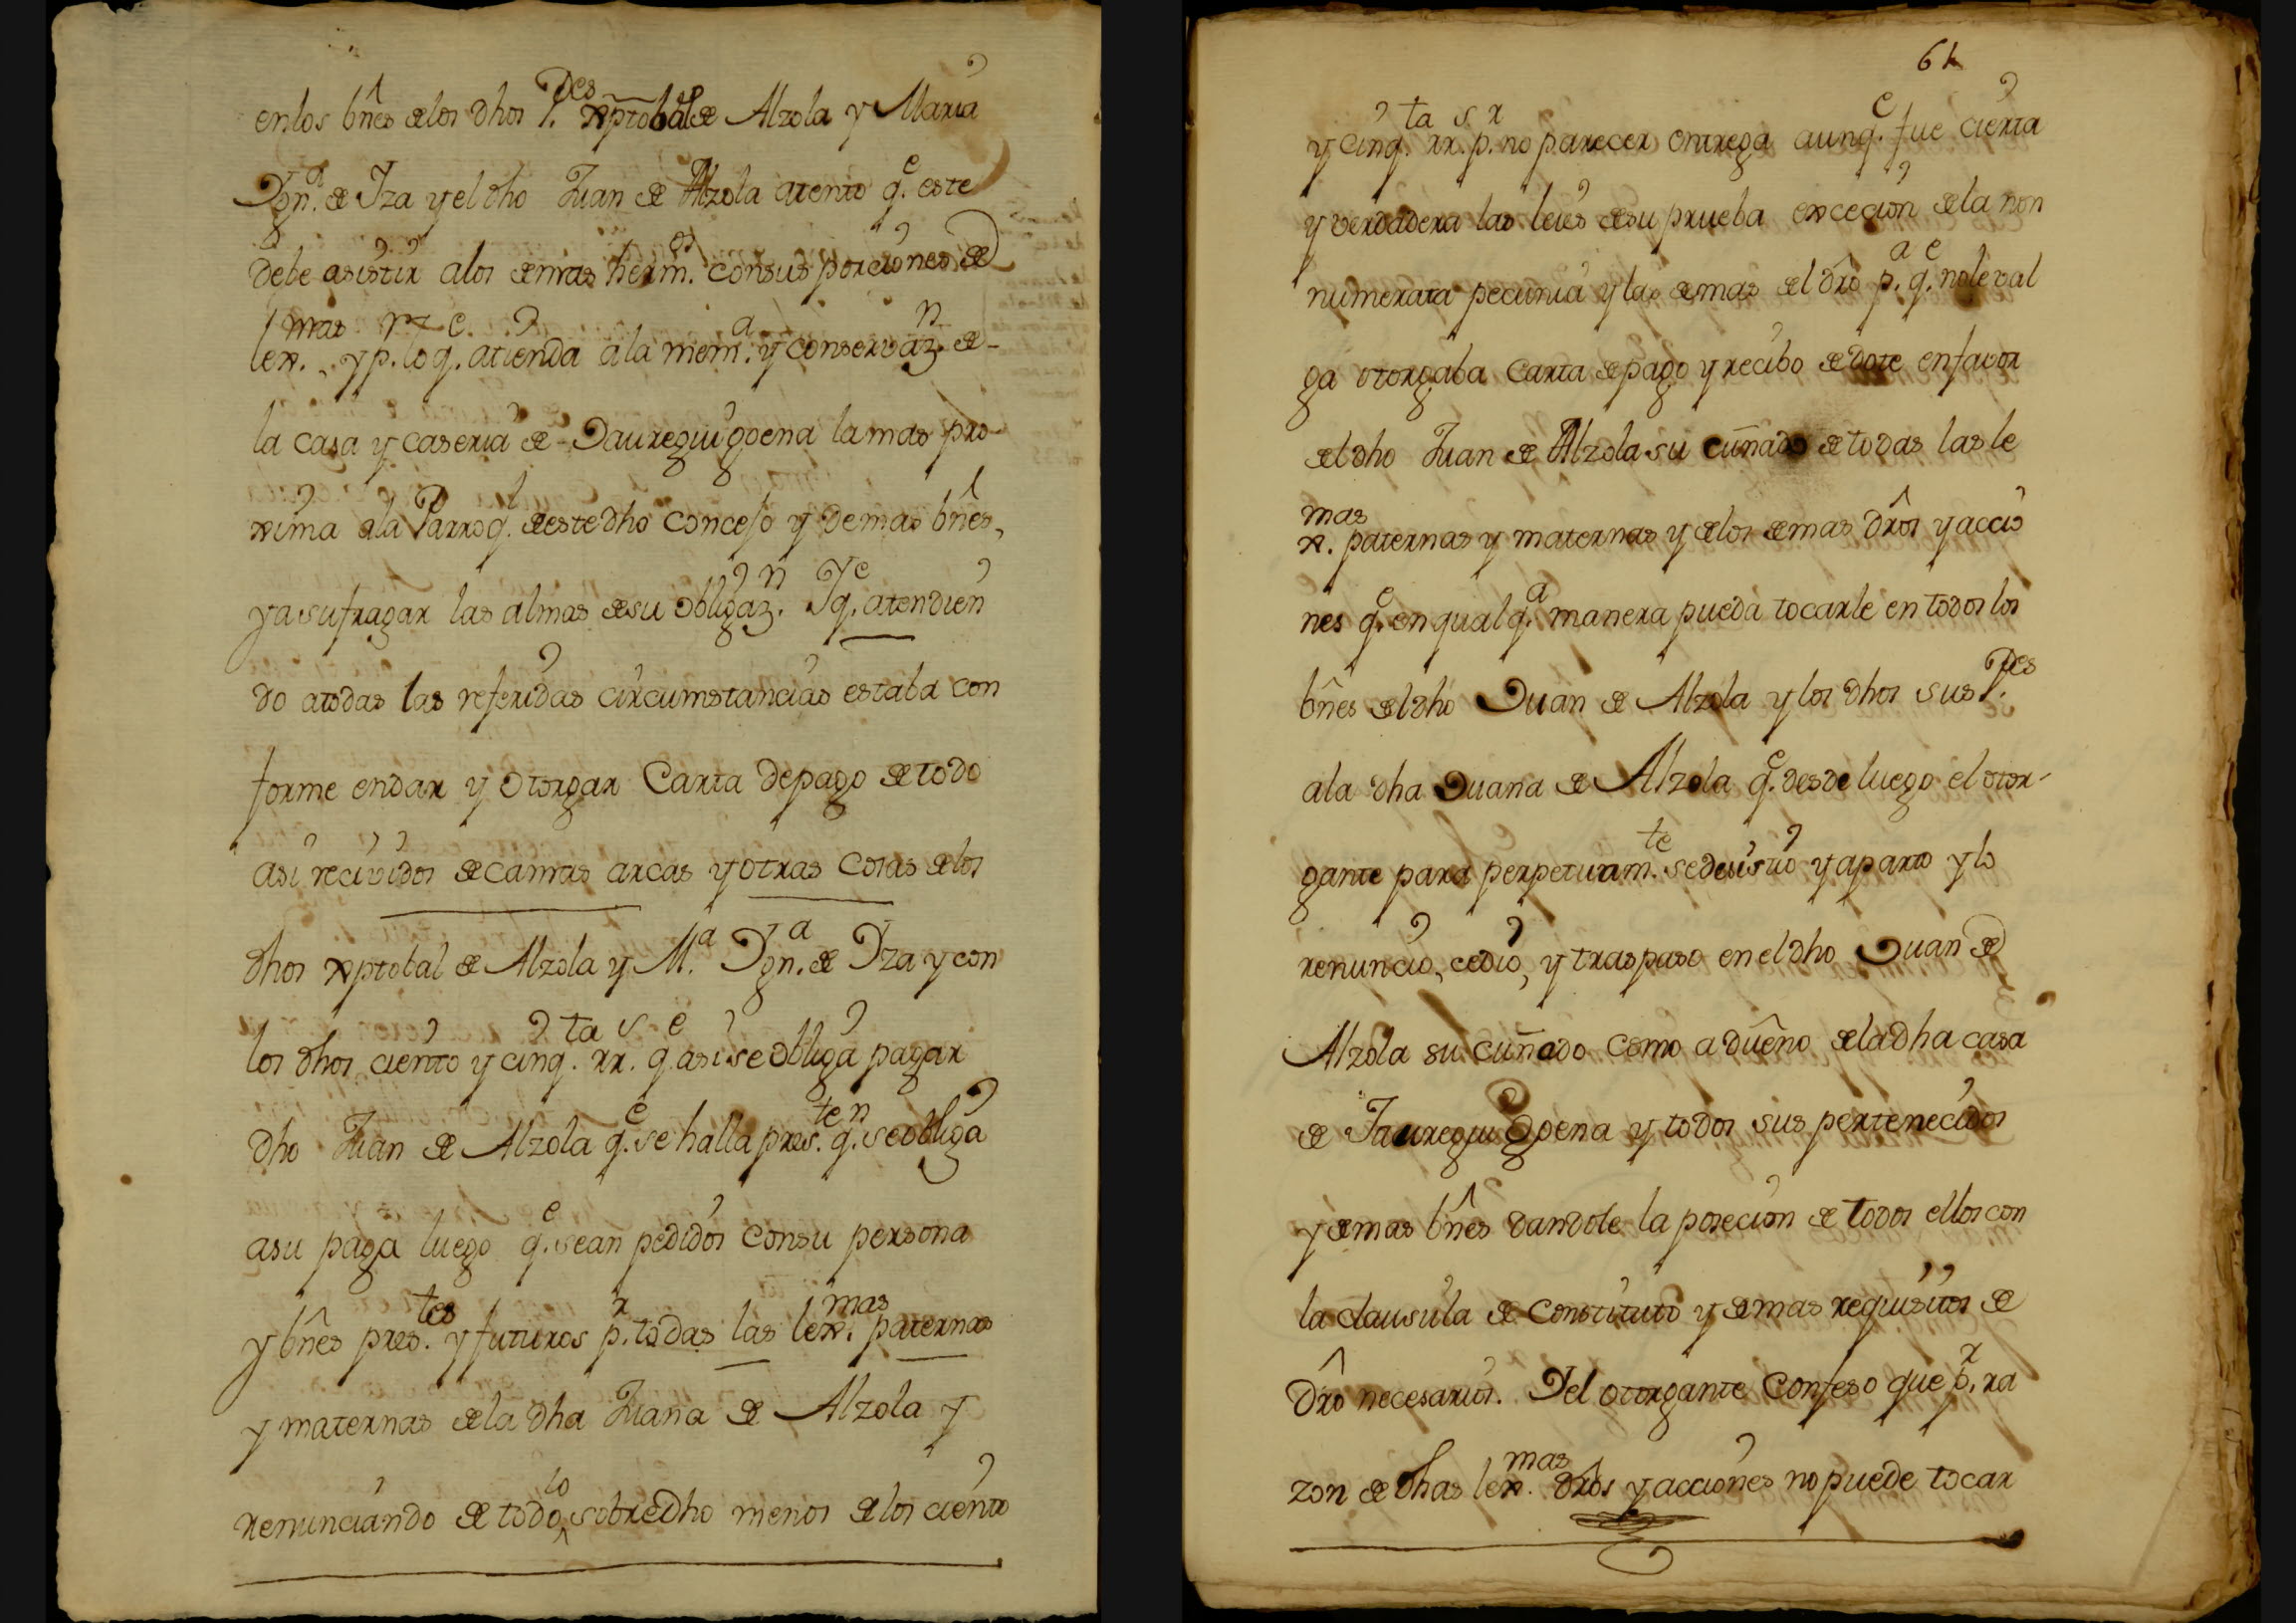 en los bn̂es de los dhos P.des xp̄tobal de Alzola y Maria
Ygn.a de Iza y el dho Juan de Alzola atento q.e este
debe asistir a los demas herm.os con sus porciones de
lex.mas y p.r lo q.e atienda a la mem.a y conservaz.n de-
la casa y caseria de Jauregui goena la mas pro-
xima ala Parroq.l de este dho concejo y demas bn̂es,
y a sufragar las almas de su obligaz.n Y q.e atendien
do atodas las referidas circumstancias estaba con
forme en dar y otorgar Carta de pago de todo
asi recividos de camas arcas y otras cosas de los
dhos xptobal de Alzola y M.a Ygn.a de Yza y con
los dhos ciento y cinq.ta rr.s q.e asi se obliga pagar
dho Juan de Alzola q.e se halla pres.te q.n se obliga
a su paga luego q.e sean pedidos con su persona
y bn̂es pres.tes y futuros p.r todas las lex.mas paternas
y maternas de la dha Juana de Alzola y
renunciando de todo lo sobredho menos de los ciento
61
y cinq.ta rr.s p.r no parecer entrega aunq.e fue cierta
y verdadera las leies de su prueba excecion de la non
numerata pecunia y las demas del dr̂o p.a q.e no le val
ga otorgaba carta de pago y recibo de dote en favor
del dho Juan de Alzola su cuñado de todas las le
x.mas paternas y maternas y de los demas dr̂os y accio
nes q.e en qualq.a manera pueda tocarle en todos los
bn̂es del dho Juan de Alzola y los dhos sus P.des
ala dha Juana de Alzola q.e desde luego el otor-
gante para perpetuam.te se desistio y aparto y lo
renunció, cedió, y traspaso en el dho Juan de
Alzola su cuñado como a dueño de la dha casa
de Jauregui Goena y todos sus pertenecidos
y demas bn̂es dandole la posecion de todos ellos con
la clausula de constituto y demas requisitos de
dr̂o necesarios. Y el otorgante confeso que p.r ra
zon de dhas lex.mas dr̂os y acciones no puede tocar